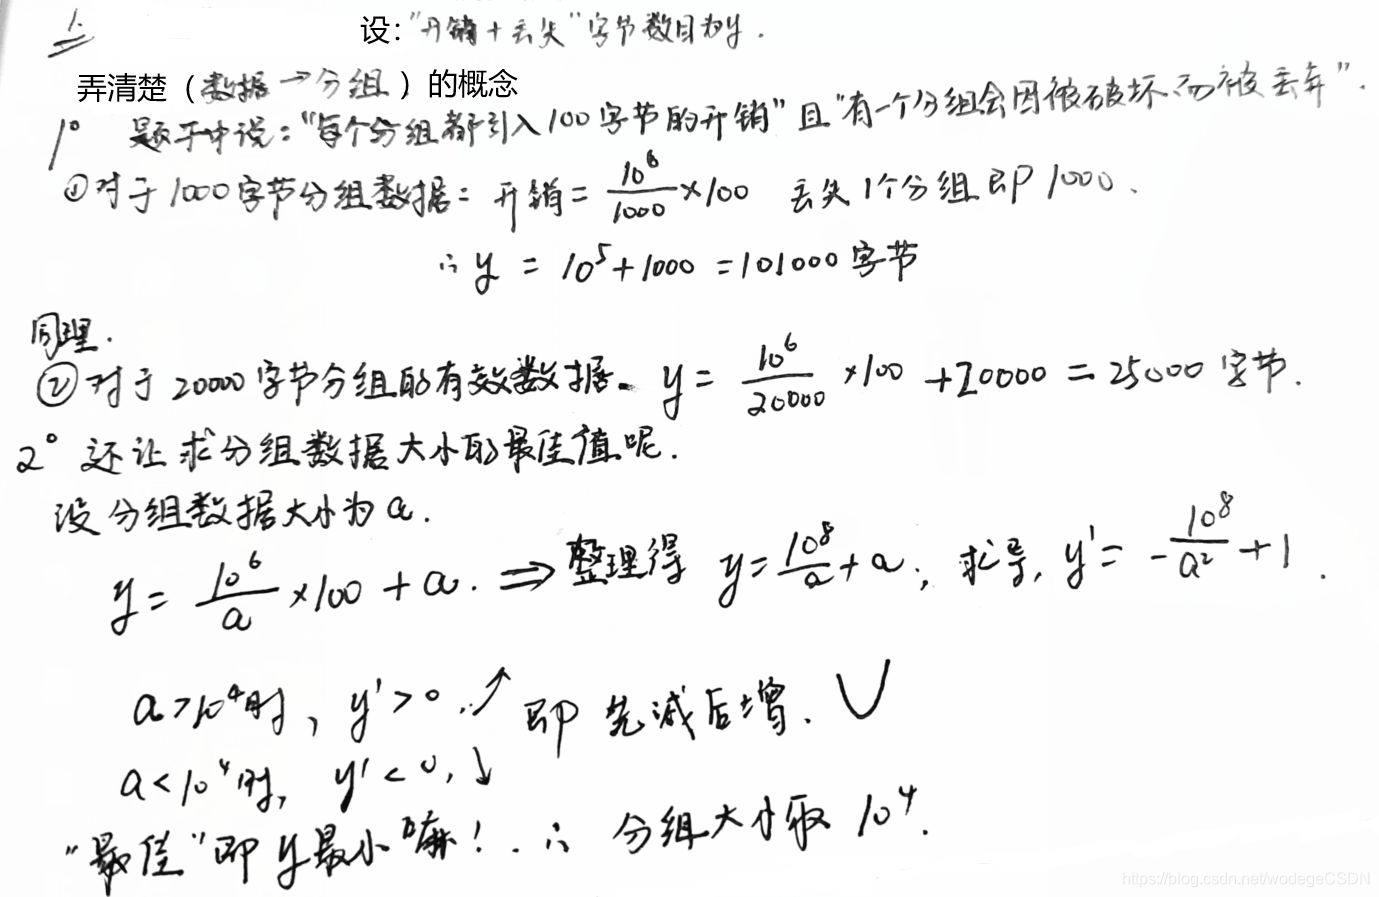 1.
设:“开销+丢失”字节数目为y.
弄清楚（数据→分组）的概念
1° 题干中说:“每个分组都引入100字节的开销”且“有一个分组会因被破坏而被丢弃”.
①对于1000字节分组数据: 开销=10⁶/1000×100 丢失1个分组即1000.
∴y = 10⁵+1000 =101000字节
同理.
②对于20000字节分组的有效数据. y = 10⁶/20000 ×100 +20000 = 25000字节.
2° 还让求分组数据大小的最佳值呢.
设分组数据大小为a.
y = 10⁶/a ×100 + a. ⇒ 整理得 y=10⁸/a+a; 求导, y'= -10⁸/a²+1.
a>10⁴时, y'>0.↗ 即 先减后增. ∪
a<10⁴时, y'<0,↓
“最佳”即y最小嘛!. ∴ 分组大小取 10⁴.
https://blog.csdn.net/wodegeCSDN